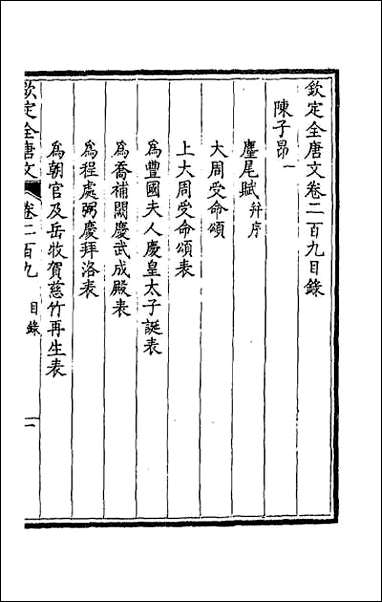 欽定全唐文卷二百九目錄
陳子昂一
麈尾賦并序
大周受命頌
上大周受命頌表
為豐國夫人慶皇太子誕表
為喬補闕慶武成殿表
為程處弼慶拜洛表
為朝官及岳牧賀慈竹再生表
欽定全唐文 卷二百九 目錄 一